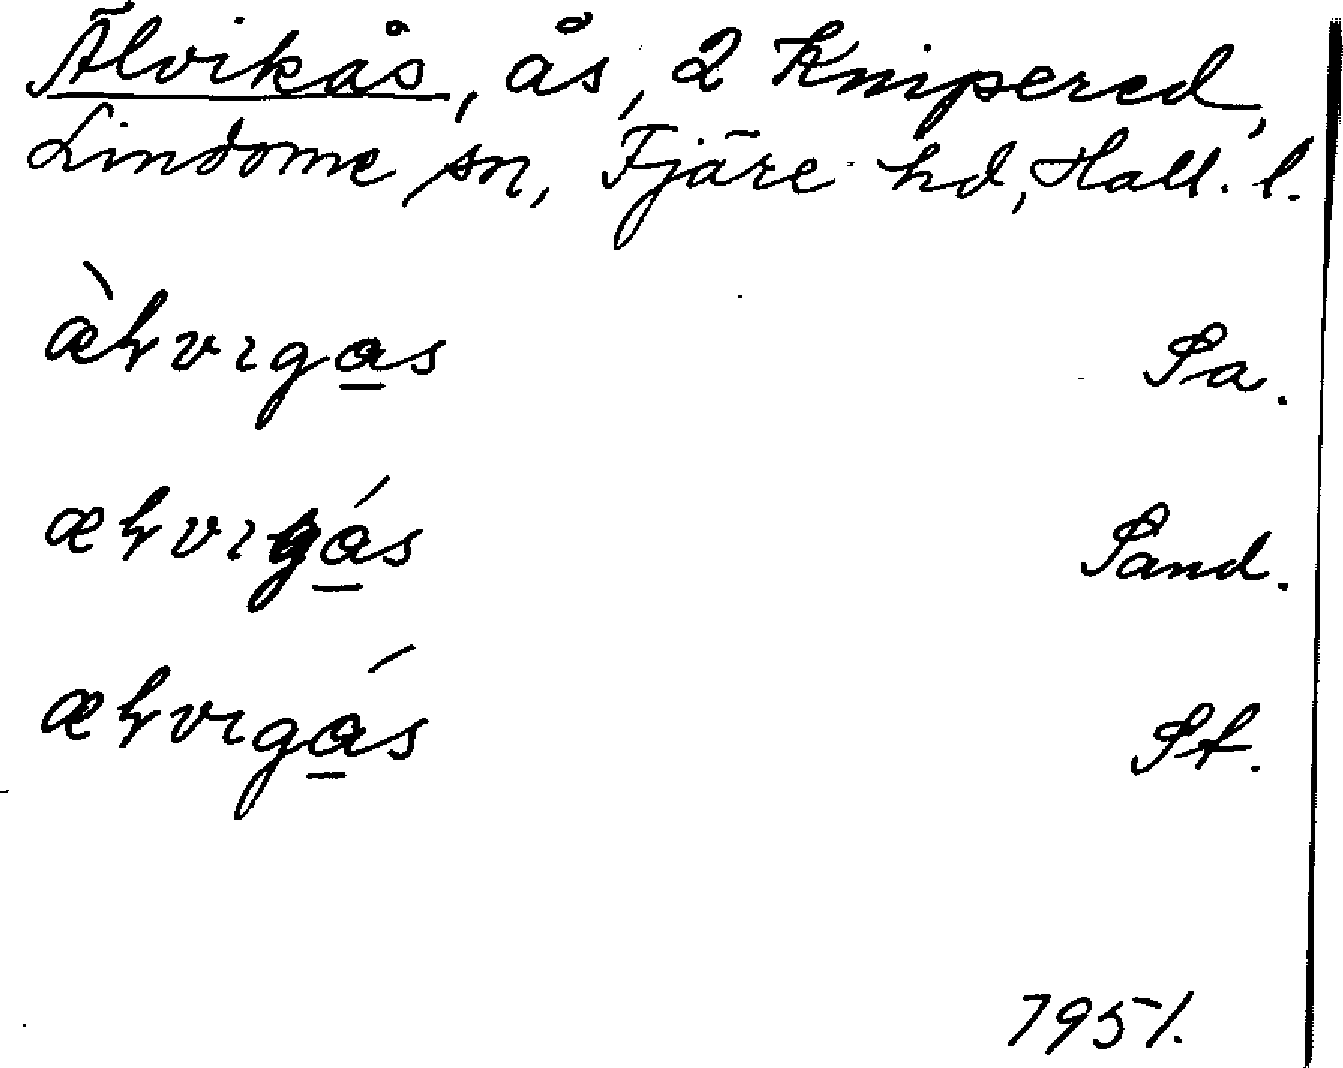 Älvikås, ås, 2 Knipered,
Lindome sn, Fjäre hd, Hall. l.
æ̀ɫvıga̲s Sa.
æɫvıgá̲s Sand.
æɫvıgá̲s St.
1951.